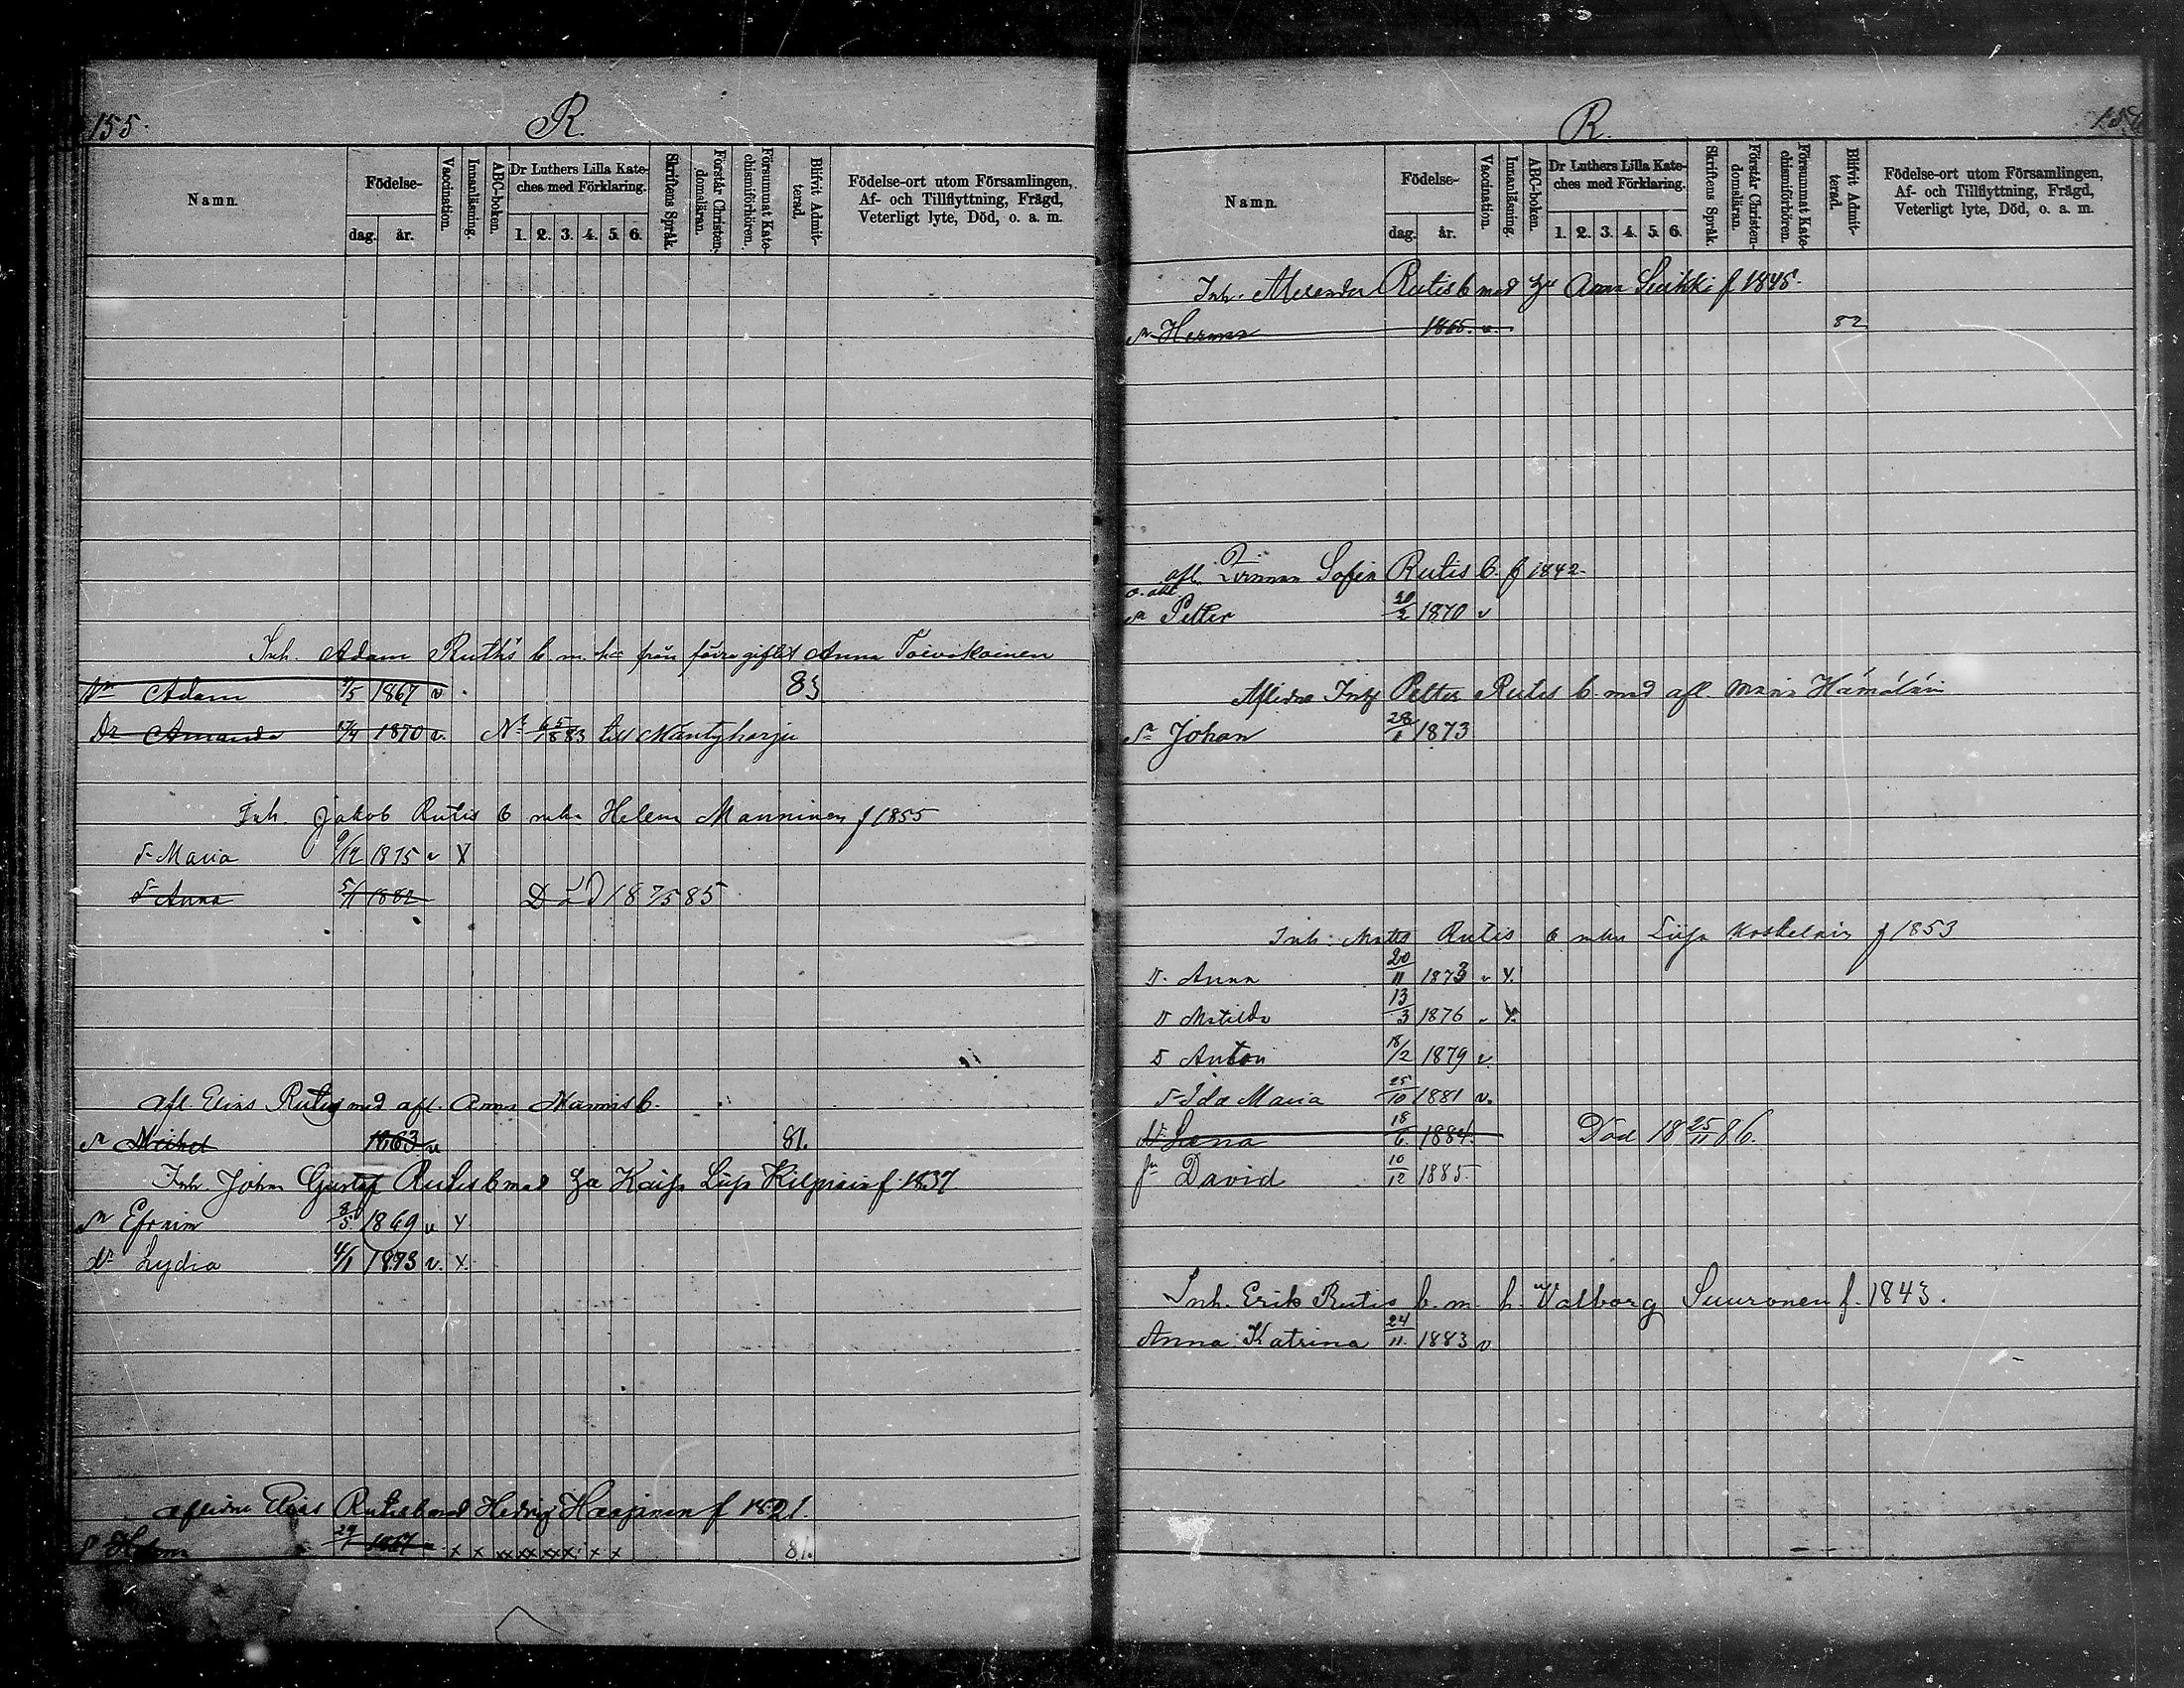 155.
R.
Namn.
Födelse-
dag.
år.
Vaccination.
Innanläsning.
ABC-boken.
Dr Luthers Lilla Kate-
ches med Förklaring.
1. 2. 3. 4. 5. 6.
Skriftens Språk.
Förstår Christen-
domsläran.
Försummat Kate-
chismiförhören.
Blifvit Admit-
terad.
Födelse-ort utom Församlingen,
Af- och Tillflyttning, Frägd,
Veterligt lyte, Död, o. a. m.
Inh. Adam Ruthis b. m. h. från förra giftet Anna Toivokainen
Adam 1867 v 83
Dr Amanda 1870 v. No 65/1883 till Mäntyharju
Inh. Jakob Rutis b mhu Helena Manninen f 1855
D Maria 9/12 1875 v X
D Anna 5/1 1882 Död 18 7/5 85
afl. Elias Rutis med afl. Anna Mannis b.
Sn Mickel 1863 v 81.
Inh. Johan Gustaf Rutis b med Kaisa Liisa Kilpiain f. 1837
Sn Efraim 8/5 1869 v Y
Dr Lydia 4/1 1873 v. X.
aflidne Elias Rutis b med Hedvig Haapanen f 1821.
1867 x x xx xx xx x x 81.
R.
Namn.
Födelse-
dag.
år.
Vaccination.
Innanläsning.
ABC-boken.
Dr Luthers Lilla Kate-
ches med Förklaring.
1. 2. 3. 4. 5. 6.
Skriftens Språk.
Förstår Christen-
domsläran.
Försummat Kate-
chismiförhören.
Blifvit Admit-
terad.
Födelse-ort utom Församlingen,
Af- och Tillflyttning, Frägd,
Veterligt lyte, Död, o. a. m.
Inh. Alexander Rutis b med Anna f 1845.
Sn Herman 1865. v. 82
afl. Sofia Rutis b. f 1842
o. äkt
Sn Petter 20/2 1870 v
Aflidne Inh Petter Rutis b. med afl. Maria Hämäläin
Sn Johan 28/1 1873
Inh. Matts Rutis b mhu Liisa Koskelain f 1853
D. Anna 20/11 1873 v Y.
D Matilda 13/3 1876 v Y.
S Anton 18/2 1879 v.
D Ida Maria 25/10 1881 v.
Dr Lena 18/6 1884. Död 18 25/11 86.
Sn David 10/12 1885.
Inh. Erik Rutis b. m. h. Valborg Suuronen f. 1843.
Anna Katrina 24/11 1883 v